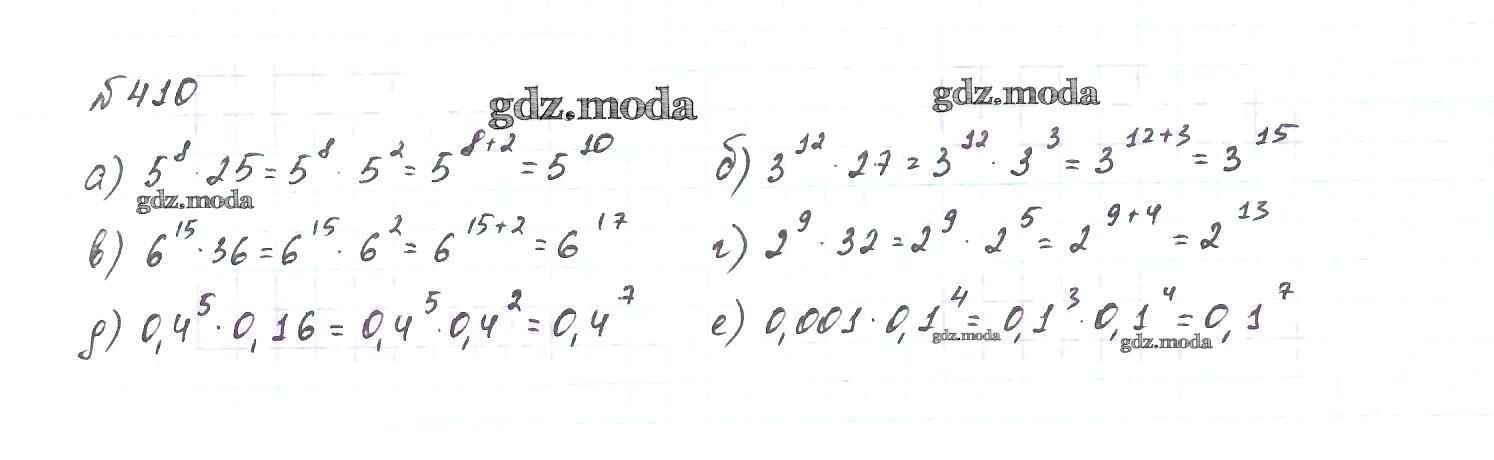 № 410
gdz.moda gdz.moda
а) 5^8 · 25 = 5^8 · 5^2 = 5^(8+2) = 5^10 б) 3^12 · 27 = 3^12 · 3^3 = 3^(12+3) = 3^15
gdz.moda
в) 6^15 · 36 = 6^15 · 6^2 = 6^(15+2) = 6^17 г) 2^9 · 32 = 2^9 · 2^5 = 2^(9+4) = 2^13
д) 0,4^5 · 0,16 = 0,4^5 · 0,4^2 = 0,4^7 е) 0,001 · 0,1^4 = 0,1^3 · 0,1^4 = 0,1^7
gdz.moda gdz.moda